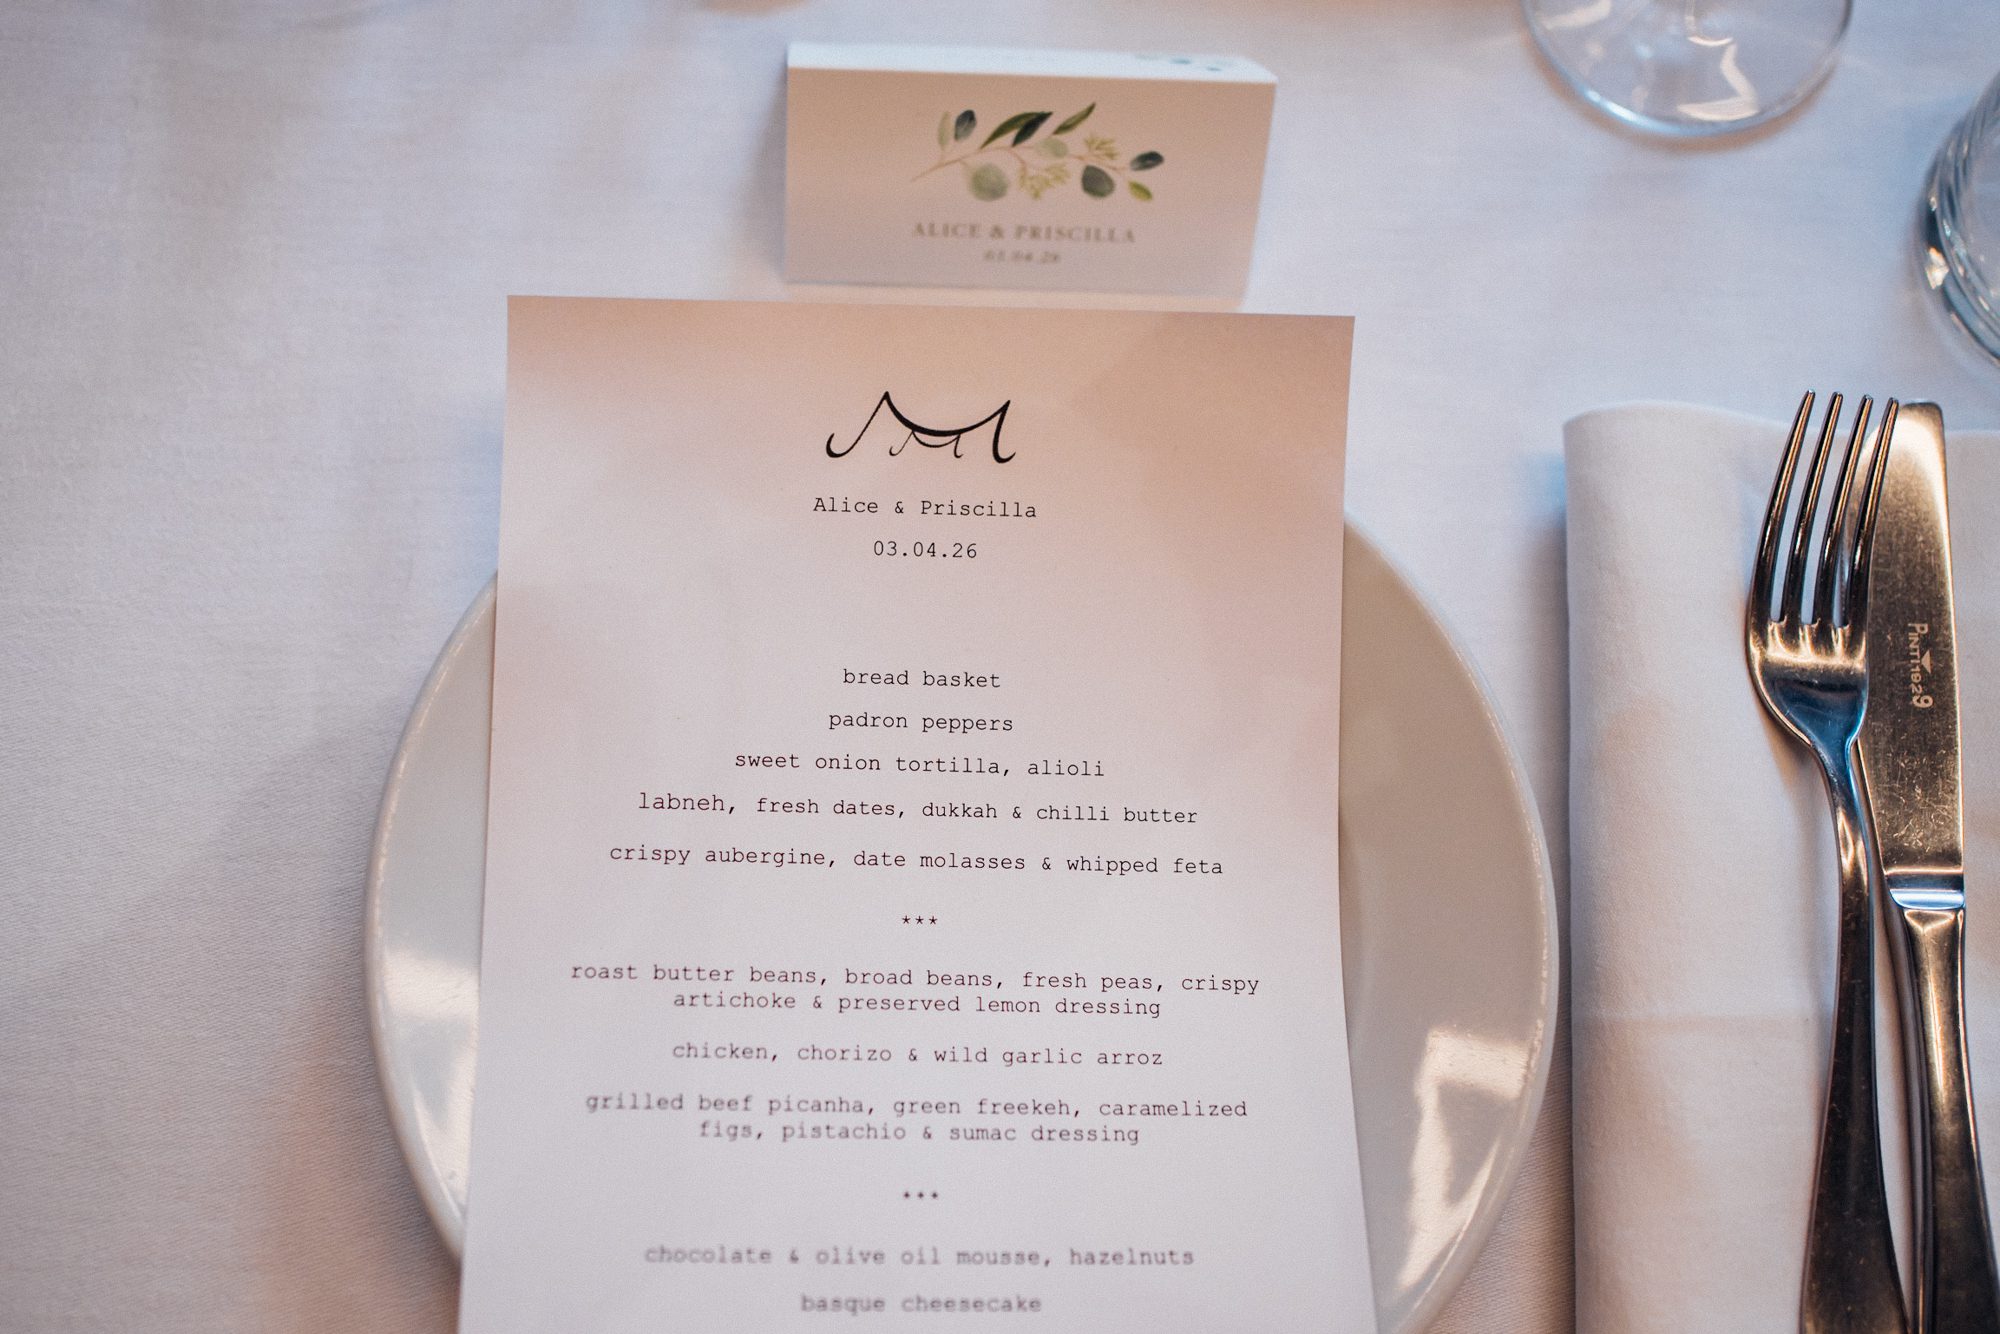 ALICE & PRISCILLA
03.04.26
Alice & Priscilla
03.04.26
bread basket
padron peppers
sweet onion tortilla, alioli
labneh, fresh dates, dukkah & chilli butter
crispy aubergine, date molasses & whipped feta
***
roast butter beans, broad beans, fresh peas, crispy
artichoke & preserved lemon dressing
chicken, chorizo & wild garlic arroz
grilled beef picanha, green freekeh, caramelized
figs, pistachio & sumac dressing
***
chocolate & olive oil mousse, hazelnuts
basque cheesecake
PINTI1929